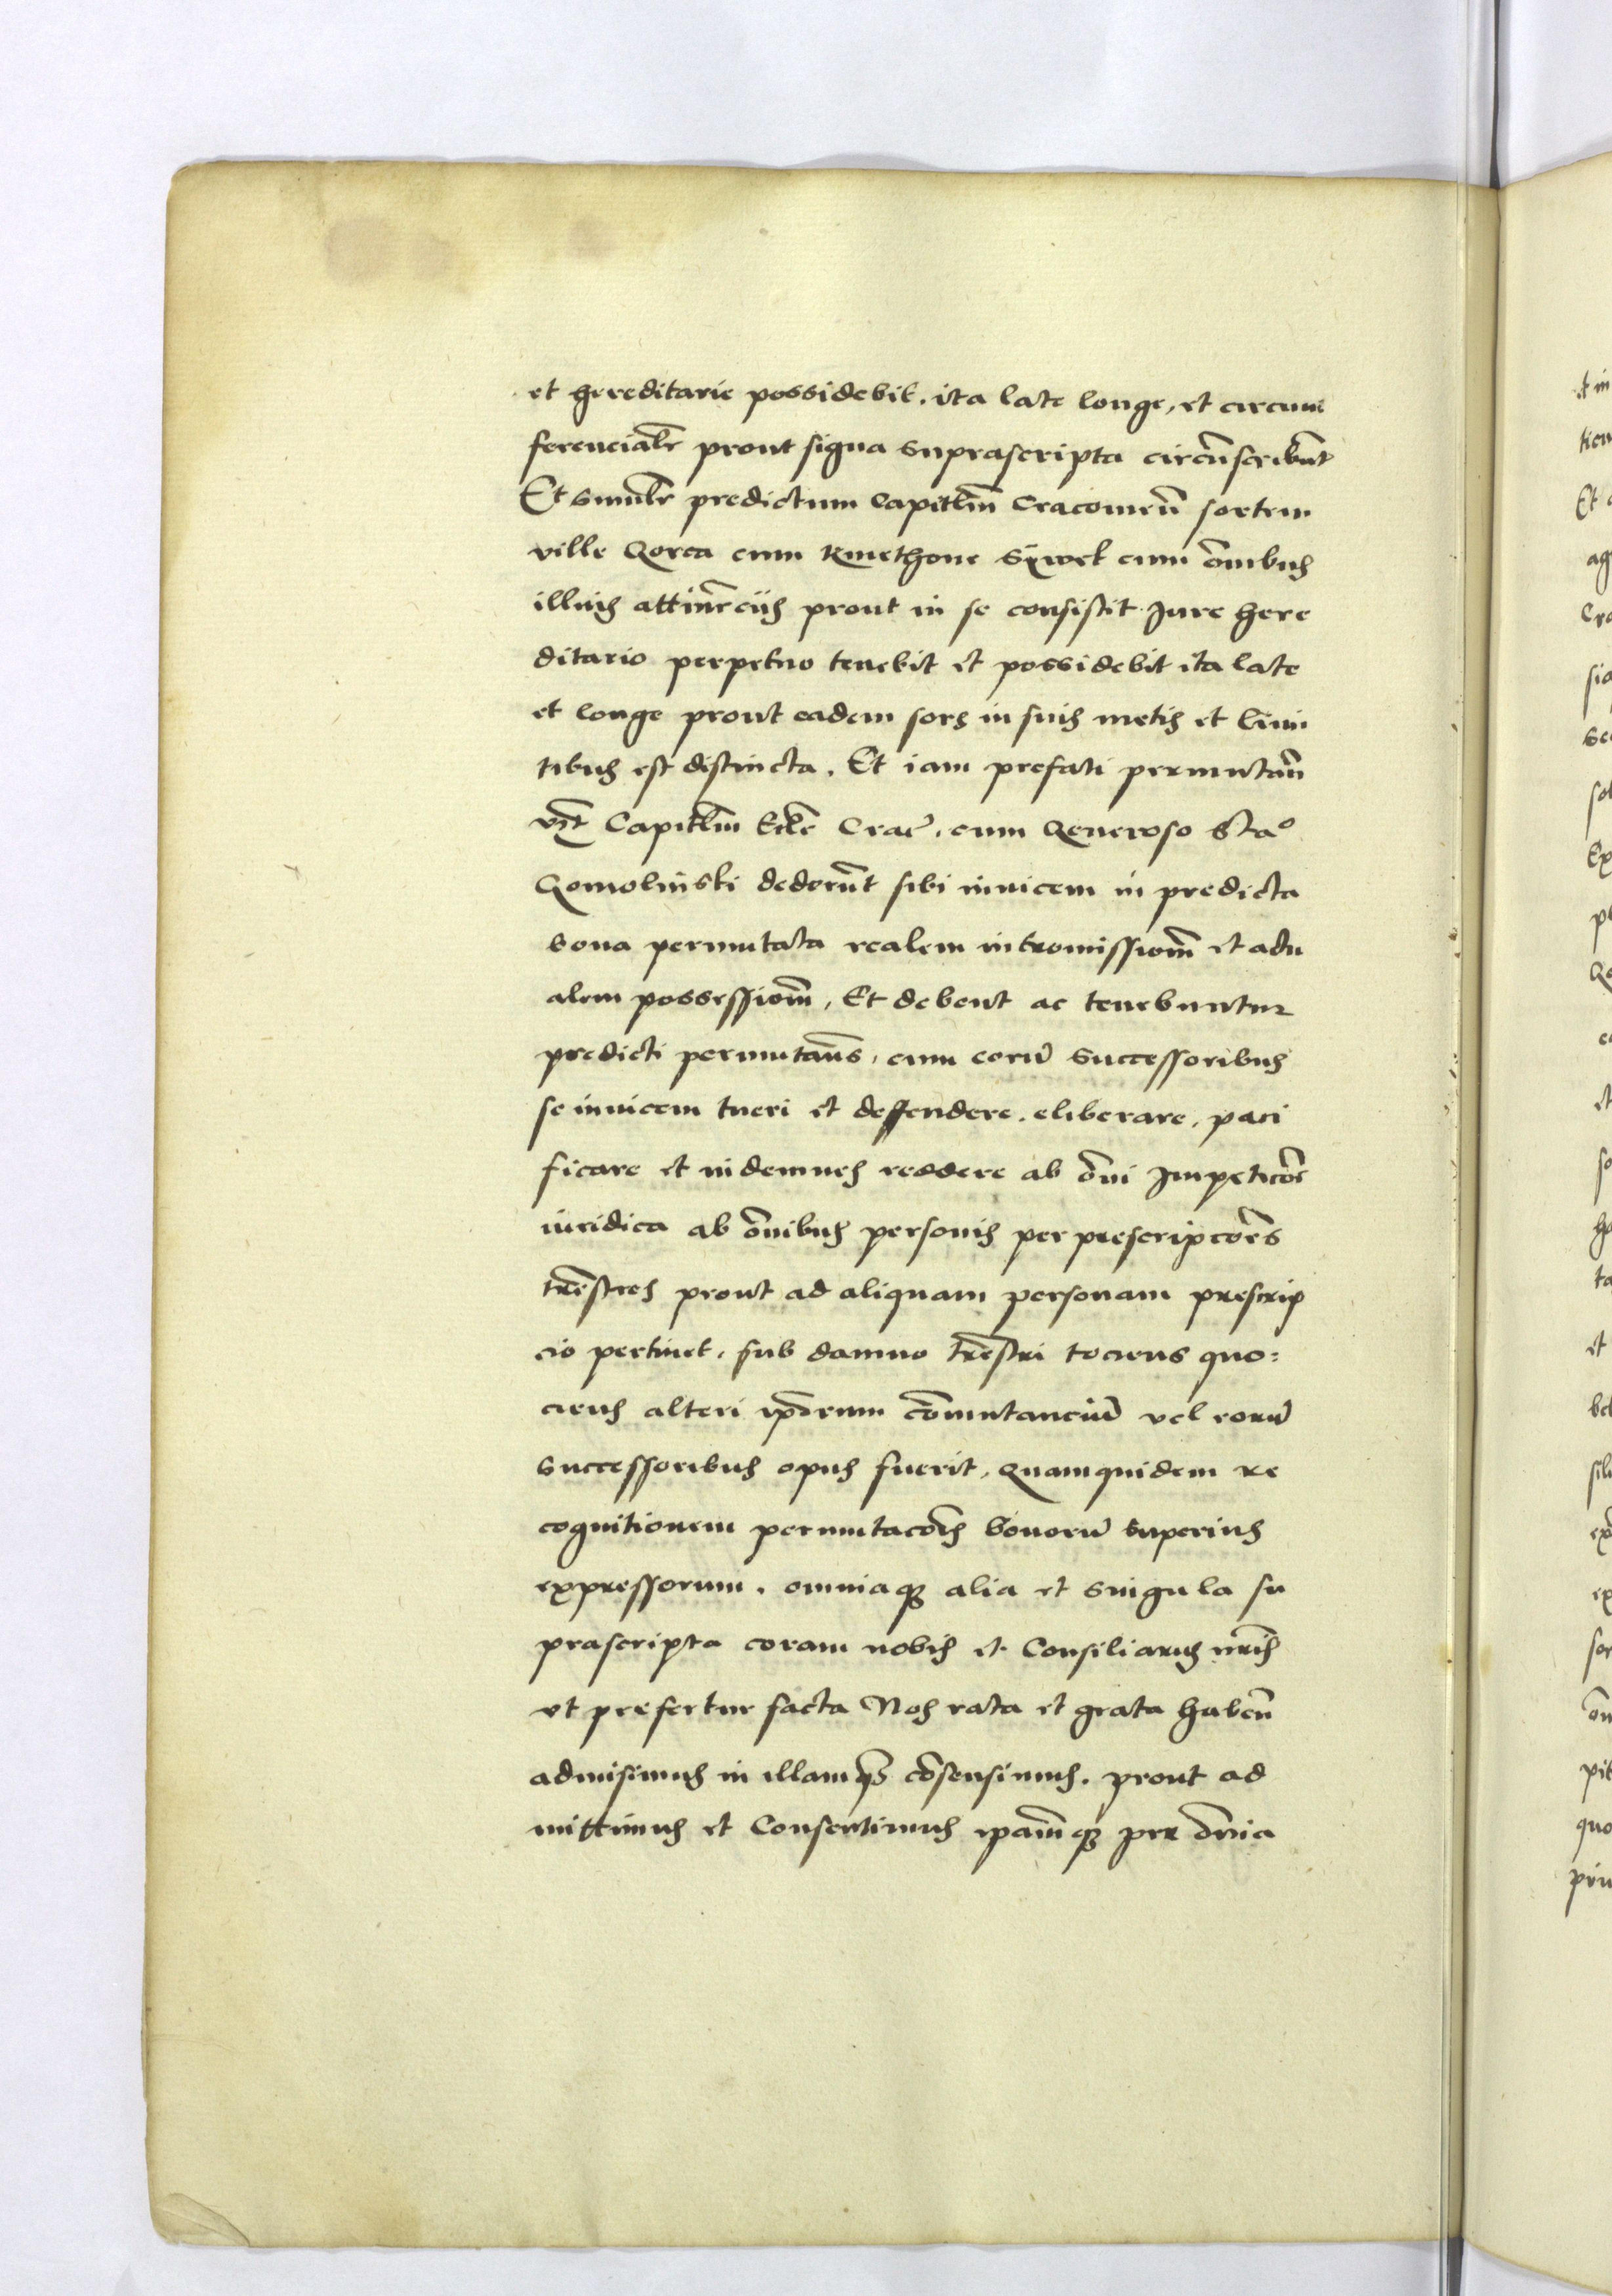 et hereditarie possidebit. ita late longe, et circum
ferencialr̃ prout signa suprascripta circũscribũt
Et similr̃ predictum Capitl̃m Cracouieñ sortem
ville Gorca cum kmethone Sywek cum õnibus
illius attinẽciis prout in se consistit Jure here
ditario perpetuo tenebit et possidebit ita late
et longe prout eadem sors in suis metis et limi
tibus est distincta. Et iam prefati permutañ
vr̃ Capitl̃m Eccl̃e Crac̃. cum Generoso Sta°
Gomolinski dederũt sibi inuicem in predicta
bona permutata realem intromissionẽ et actu
alem possessionẽ, Et debent ac tenebuntur
predicti permutañs, cum eorũ successoribus
se inuicem tueri et deffendere. eliberare, paci
ficare et indemnes reddere ab õni Impeticõe
iuridica ab õnibus personis per prescripcões
trr̃estres prout ad aliquam personam prescrip
cio pertinet, sub damno trr̃estri tociens quo=
ciens alteri ip̃orum cõmutanciũ vel eorũ
successoribus opus fuerit, quamquidem re
cognitionem permutacõis bonorũ superius
expressorum. omniaq3 alia et singula su
prascripta coram nobis et Consiliariis nr̃is
vt prefertur facta Nos rata et grata habeñ
admisimus in illamq3 cõsensimus. prout ad
mittimus et Consentimus ip̃amq3 pr̃ õnia